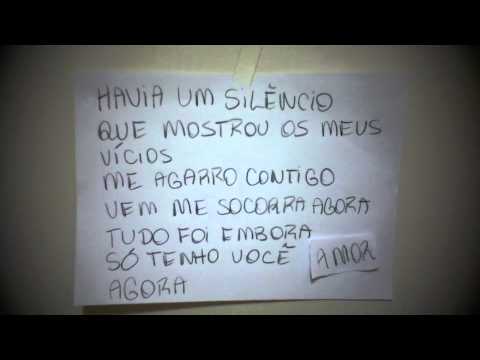 HAVIA UM SILÊNCIO
QUE MOSTROU OS MEUS
VÍCIOS
ME AGARRO CONTIGO
VEM ME SOCORRA AGORA
TUDO FOI EMBORA
SÓ TENHO VOCÊ AMOR
AGORA